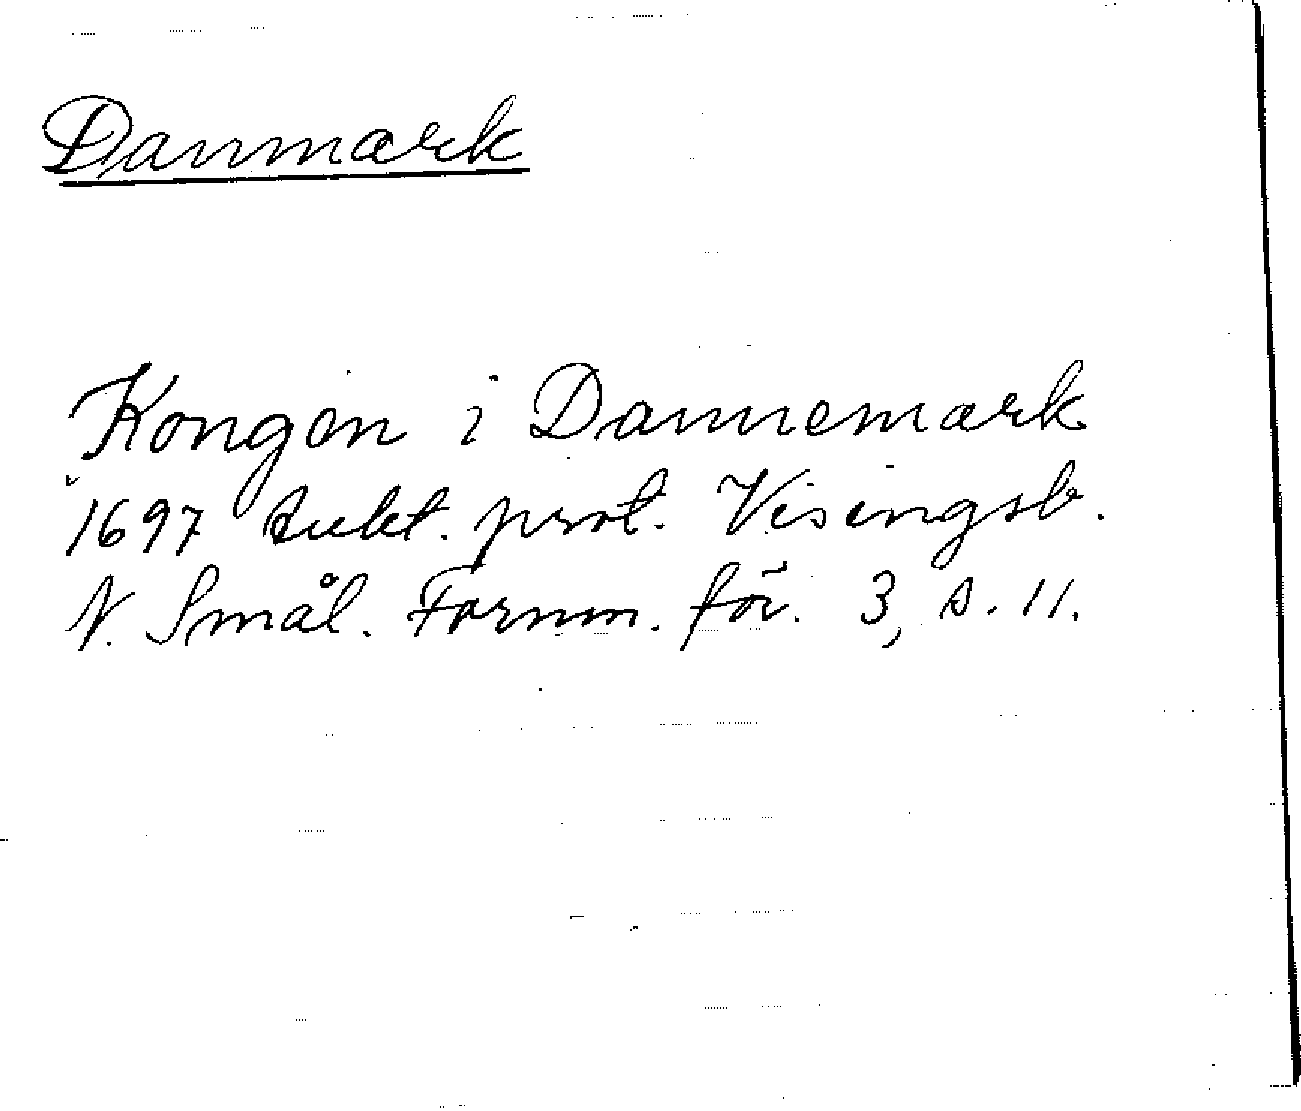 Danmark
Kongen i Dannemark
1697 kukt. prot. Visingsb.
N. Smål. Fornm. för. 3, s. 11.